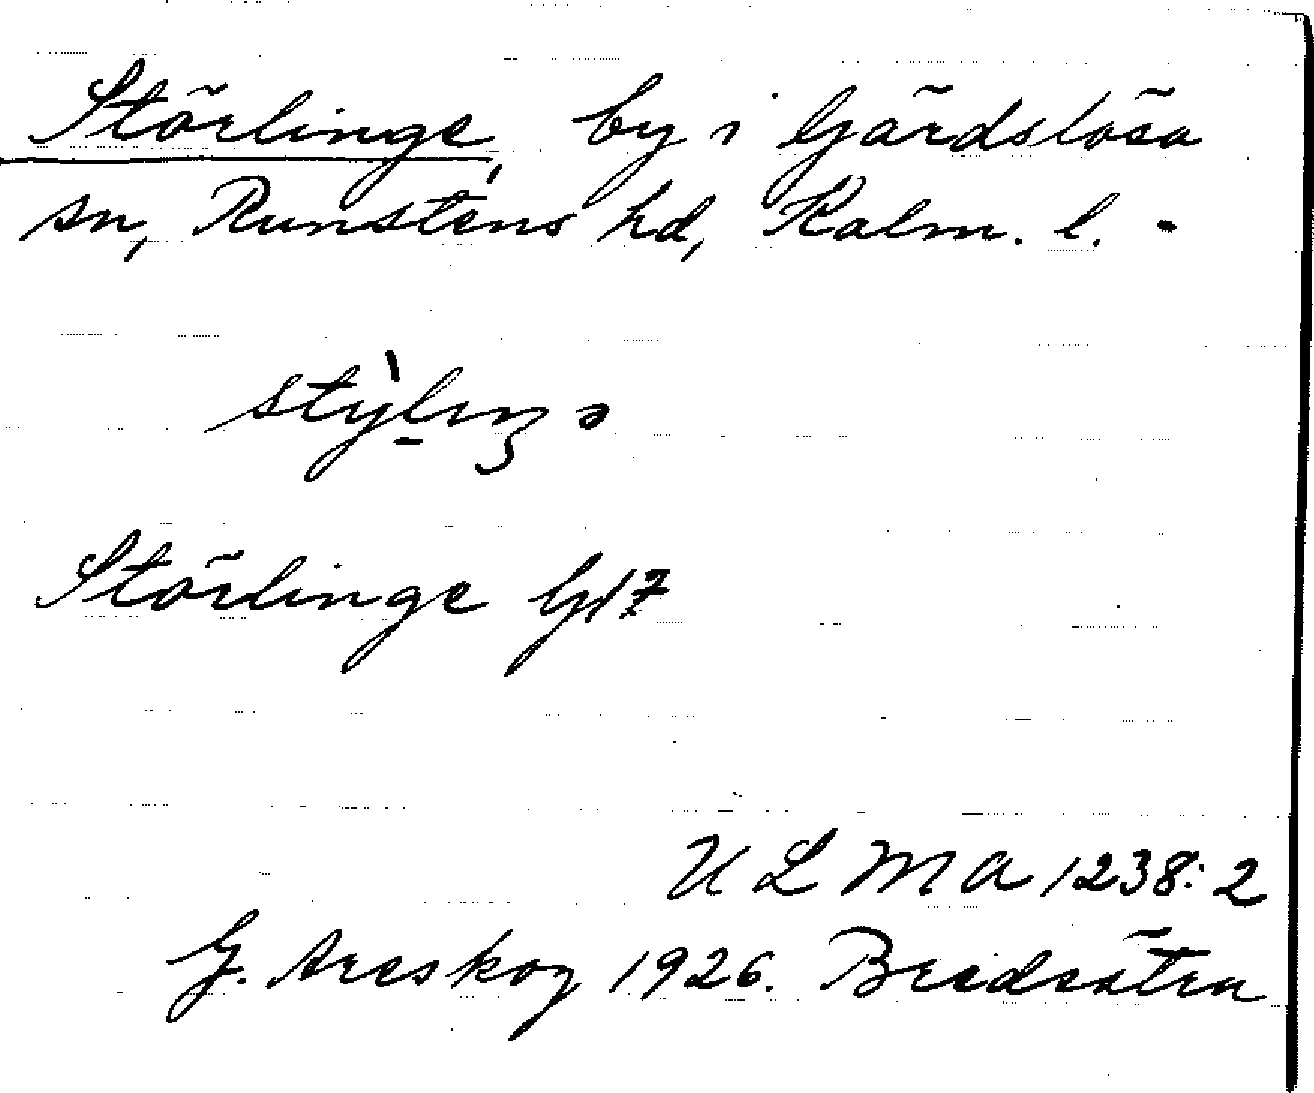 Störlinge, by i Gärdslösa
sn, Runstens hd, Kalm. l. -
stỳ̀lıŋə
Störlinge G17
ULMA 1238:2
G. Areskog 1926. Bredsätra